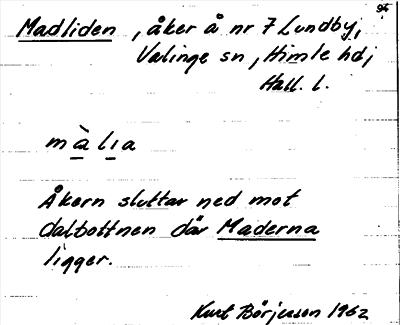 94
Madliden, åker å nr 7 Lundby,
Valinge sn, Himle hd,
Hall. l.
màlia
Åkern sluttar ned mot
dalbottnen där Maderna
ligger.
Kurt Börjesson 1962